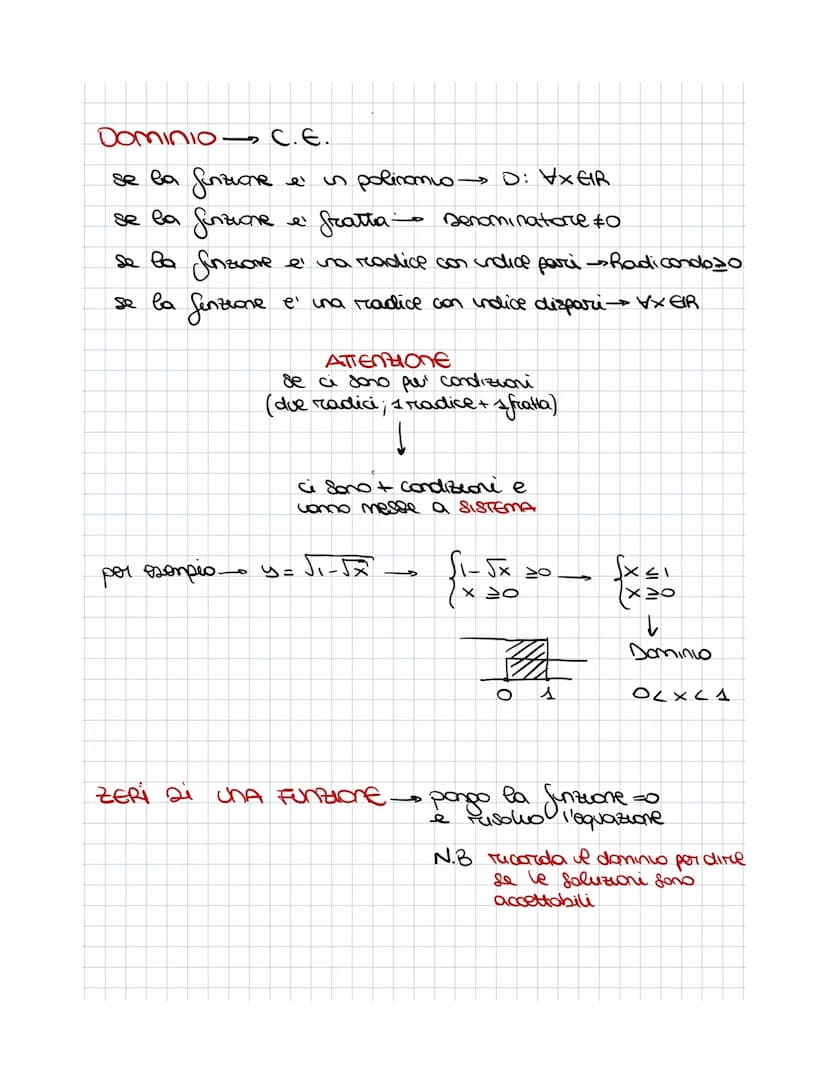 DOMINIO → C.E.
se la funzione e' un polinomio → D: ∀x∈IR
se la funzione e' fratta → Denominatore ≠0
se la funzione e' una radice con indice pari → Radicando≥0
se la funzione e' una radice con indice dispari → ∀x∈IR
ATTENZIONE
se ci sono piu' condizioni
(due radici; 1 radice + 1 fratta)
↓
ci sono + condizioni e
vanno messe a SISTEMA
per esempio → y = √1-√x → { 1-√x ≥0 → { x ≤ 1
{ x ≥0 { x ≥0
↓
Dominio
0 1 0< x < 1
ZERI DI UNA FUNZIONE → pongo la funzione =0
e risolvo l'equazione
N.B ricorda il dominio per dire
se le soluzioni sono
accettabili